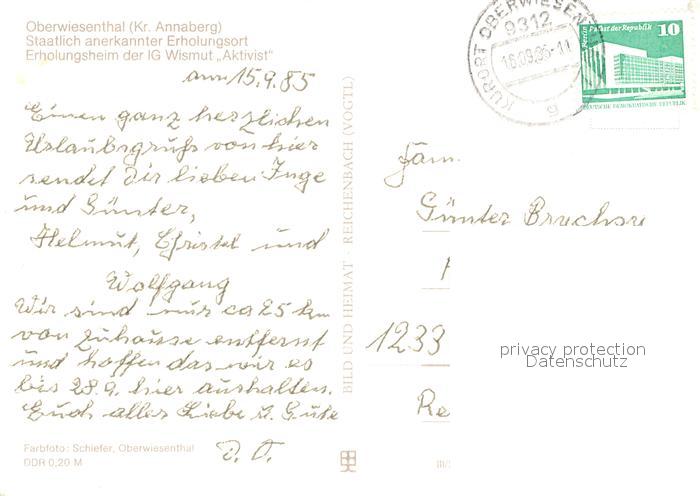 Oberwiesenthal (Kr. Annaberg)
Staatlich anerkannter Erholungsort
Erholungsheim der IG Wismut „Aktivist"
am 15.9.85
Einen ganz herzlichen
Urlaubsgruß von hier
sendet Dir lieben Inge
und Günter,
Helmut, Christel und
Wolfgang
Wir sind nur ca 25 km
von zuhause entfernt
und hoffen das wir es
bis 28.9. hier aushalten.
Euch alles Liebe u. Gute
D. O.
Farbfoto: Schiefer, Oberwiesenthal
DDR 0,20 M
BILD UND HEIMAT · REICHENBACH (VOGTL)
KURORT OBERWIESEN
9312
16.09.85-11
g
Berlin Palast der Republik
10
DEUTSCHE DEMOKRATISCHE REPUBLIK
Fam.
Günter
1233
privacy protection
Datenschutz
Re
III/